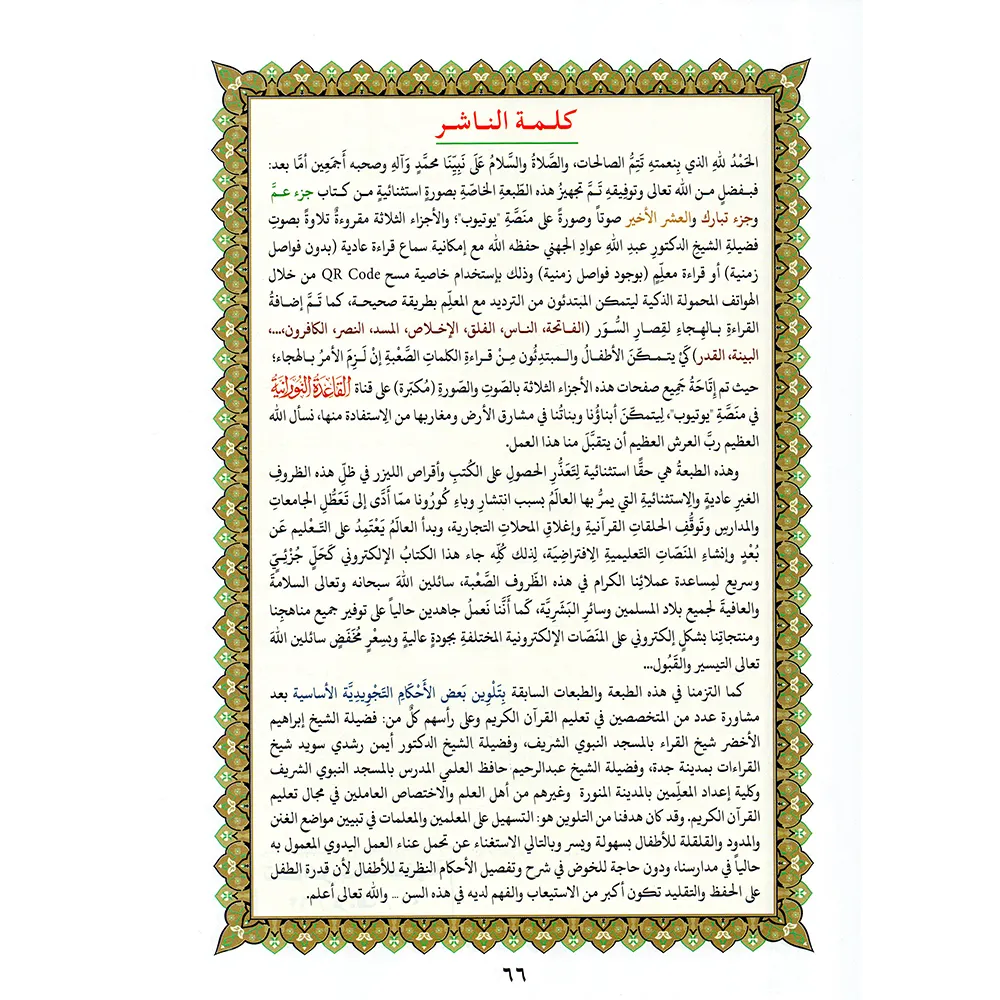 كلمة الناشر
الحَمْدُ للهِ الذي بِنعمتهِ تَتِمُّ الصالحات، والصَّلاةُ والسَّلامُ عَلَى نَبِيِّنَا محمَّدٍ وَآلهِ وصحبه أَجمَعِين أمَّا بعد:
فبـفضلٍ مـن الله تعالى وتوفيقِهِ تـمَّ تجهيزُ هذه الطَّبعةِ الخاصَّةِ بصورةٍ استثنائيةٍ مـن كـتاب جزء عـمَّ
وجزء تبارك والعشر الأخير صوتاً وصورةً على منصَّةِ "يوتيوب"؛ والأجزاء الثلاثة مقروءةٌ تلاوةً بصوتِ
فضيلةِ الشيخِ الدكتورِ عبدِ اللهِ عوادِ الجهني حفظه الله مع إمكانية سماع قراءة عادية (بدون فواصل
زمنية) أو قراءة معلِّم (بوجود فواصل زمنية) وذلك بإستخدام خاصية مسح QR Code من خلال
الهواتف المحمولة الذكية ليتمكن المبتدئون من الترديد مع المعلِّم بطريقة صحيحـة، كما تمَّ إضافةُ
القراءةِ بالـهجاءِ لقِصارِ السُّوَر (الفـاتحة، الناس، الفلق، الإخلاص، المسد، النصر، الكافرون،...،
البينة، القدر) كَيْ يتـمكَّـنَ الأطفالُ والـمبتدِئُون مِـنْ قـراءةِ الكلماتِ الصَّعْبةِ إنْ لَـزِمَ الأمرُ بالـهجاء؛
حيث تم إِتَاحَةُ جَميع صفحات هذه الأجزاء الثلاثة بالصَّوتِ والصَّورةِ (مُكبَّرة) على قناة القَاعِدَةُ النُّورَانِيَّة
في منَصَّةِ "يوتيوب"، لِيتمكَّنَ أبناؤُنا وبناتُنا في مشارق الأرض ومغاربها من الِاستفادة منها، نسأل الله
العظيم ربَّ العرش العظيم أن يتقبَّلَ منا هذا العمل.
وهذه الطبعةُ هي حقًّا استثنائية لِتَعَذُّرِ الحصول على الكُتبِ وأقراص الليزر في ظلِّ هذه الظروفِ
الغيرِ عاديةٍ والِاستثنائيةِ التي يمرُّ بها العالَمُ بسبب انتشارِ وباءِ كُورُونا ممّا أَدَّى إلى تَعَطُّلِ الجامعاتِ
والمدارسِ وتَوقُّفِ الحلقاتِ القرآنيةِ وإغلاقِ المحلاتِ التجارية، وبدأ العالَمُ يَعْتَمِدُ على التَّعْـليم عَن
بُعْدٍ وإنشاءِ المنَصّاتِ التعليميةِ الِافتراضِيَّة، لِذلك كُلِّه جاء هذا الكتابُ الإلكتروني كَحَلٍّ جُزْئِيٍّ
وسريع لـمِساعدة عملائِنا الكرام في هذه الظُّروف الصَّعْبة، سائلين اللهَ سبحانه وتعالى السلامةَ
والعافيةَ لجميعِ بلاد المسلمين وسائرِ البَشَرِيَّة، كَما أنَّنا نَعملُ جاهدين حالياً على توفير جميع مناهجِنا
ومنتجاتِنا بشكلٍ إلكتروني على المنَصّات الإلكترونية المختلفةِ بجودةٍ عاليةٍ وبِسِعْرٍ مُخَفَّضٍ سائلين اللهَ
تعالى التيسير والقَبُول...
كما التزمنا في هذه الطبعة والطبعات السابقة بِتَلْوِين بَعض الأَحْكَامِ التَجْوِيدِيَّة الأساسية بعد
مشاورة عدد من المتخصصين في تعليم القرآن الكريم وعلى رأسهم كلٌّ من: فضيلة الشيخ إبراهيم
الأخضر شيخ القراء بالمسجد النبوي الشريف، وفضيلة الشيخ الدكتور أيمن رشدي سويد شيخ
القراءات بمدينة جدة، وفضيلة الشيخ عبدالرحيم حافظ العلمي المدرس بالمسجد النبوي الشريف
وكلية إعداد المعلِّمين بالمدينة المنورة وغيرهم من أهل العلم والاختصاص العاملين في مجال تعليم
القرآن الكريم. وقد كان هدفنا من التلوين هو: التسهيل على المعلمين والمعلمات في تبيين مواضع الغنن
والمدود والقلقلة للأطفال بسهولة ويسر وبالتالي الاستغناء عن تحمل عناء العمل اليدوي المعمول به
حالياً في مدارسنا، ودون حاجة للخوض في شرح وتفصيل الأحكام النظرية للأطفال لأن قدرة الطفل
على الحفظ والتقليد تكون أكبر من الاستيعاب والفهم لديه في هذه السن ... والله تعالى أعلم.
٦٦